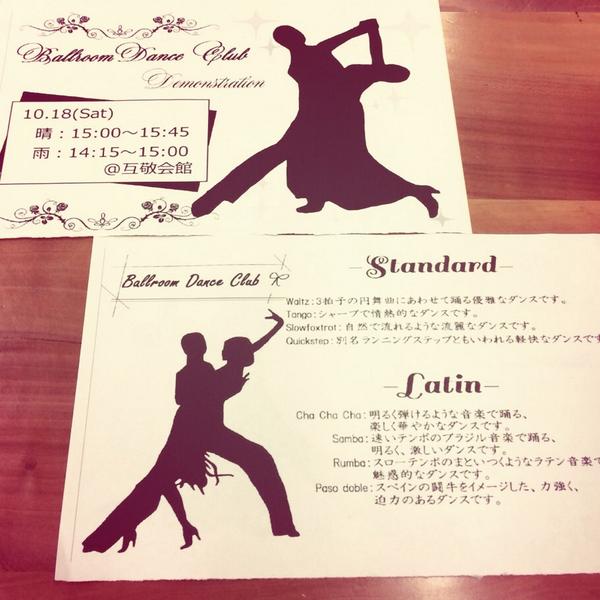 Ballroom Dance Club
Demonstration
10.18(Sat)
晴：15:00～15:45
雨：14:15～15:00
@互敬会館
Ballroom Dance Club
Standard
Waltz：3拍子の円舞曲にあわせて踊る優雅なダンスです。
Tango：シャープで情熱的なダンスです。
Slowfoxtrot：自然で流れるような流麗なダンスです。
Quickstep：別名ランニングステップともいわれる軽快なダンスです
Latin
Cha Cha Cha：明るく弾けるような音楽で踊る、
楽しく華やかなダンスです。
Samba：速いテンポのブラジル音楽で踊る、
明るく、激しいダンスです。
Rumba：スローテンポのまといつくようなラテン音楽で
魅惑的なダンスです。
Paso doble：スペインの闘牛をイメージした、力強く、
迫力のあるダンスです。